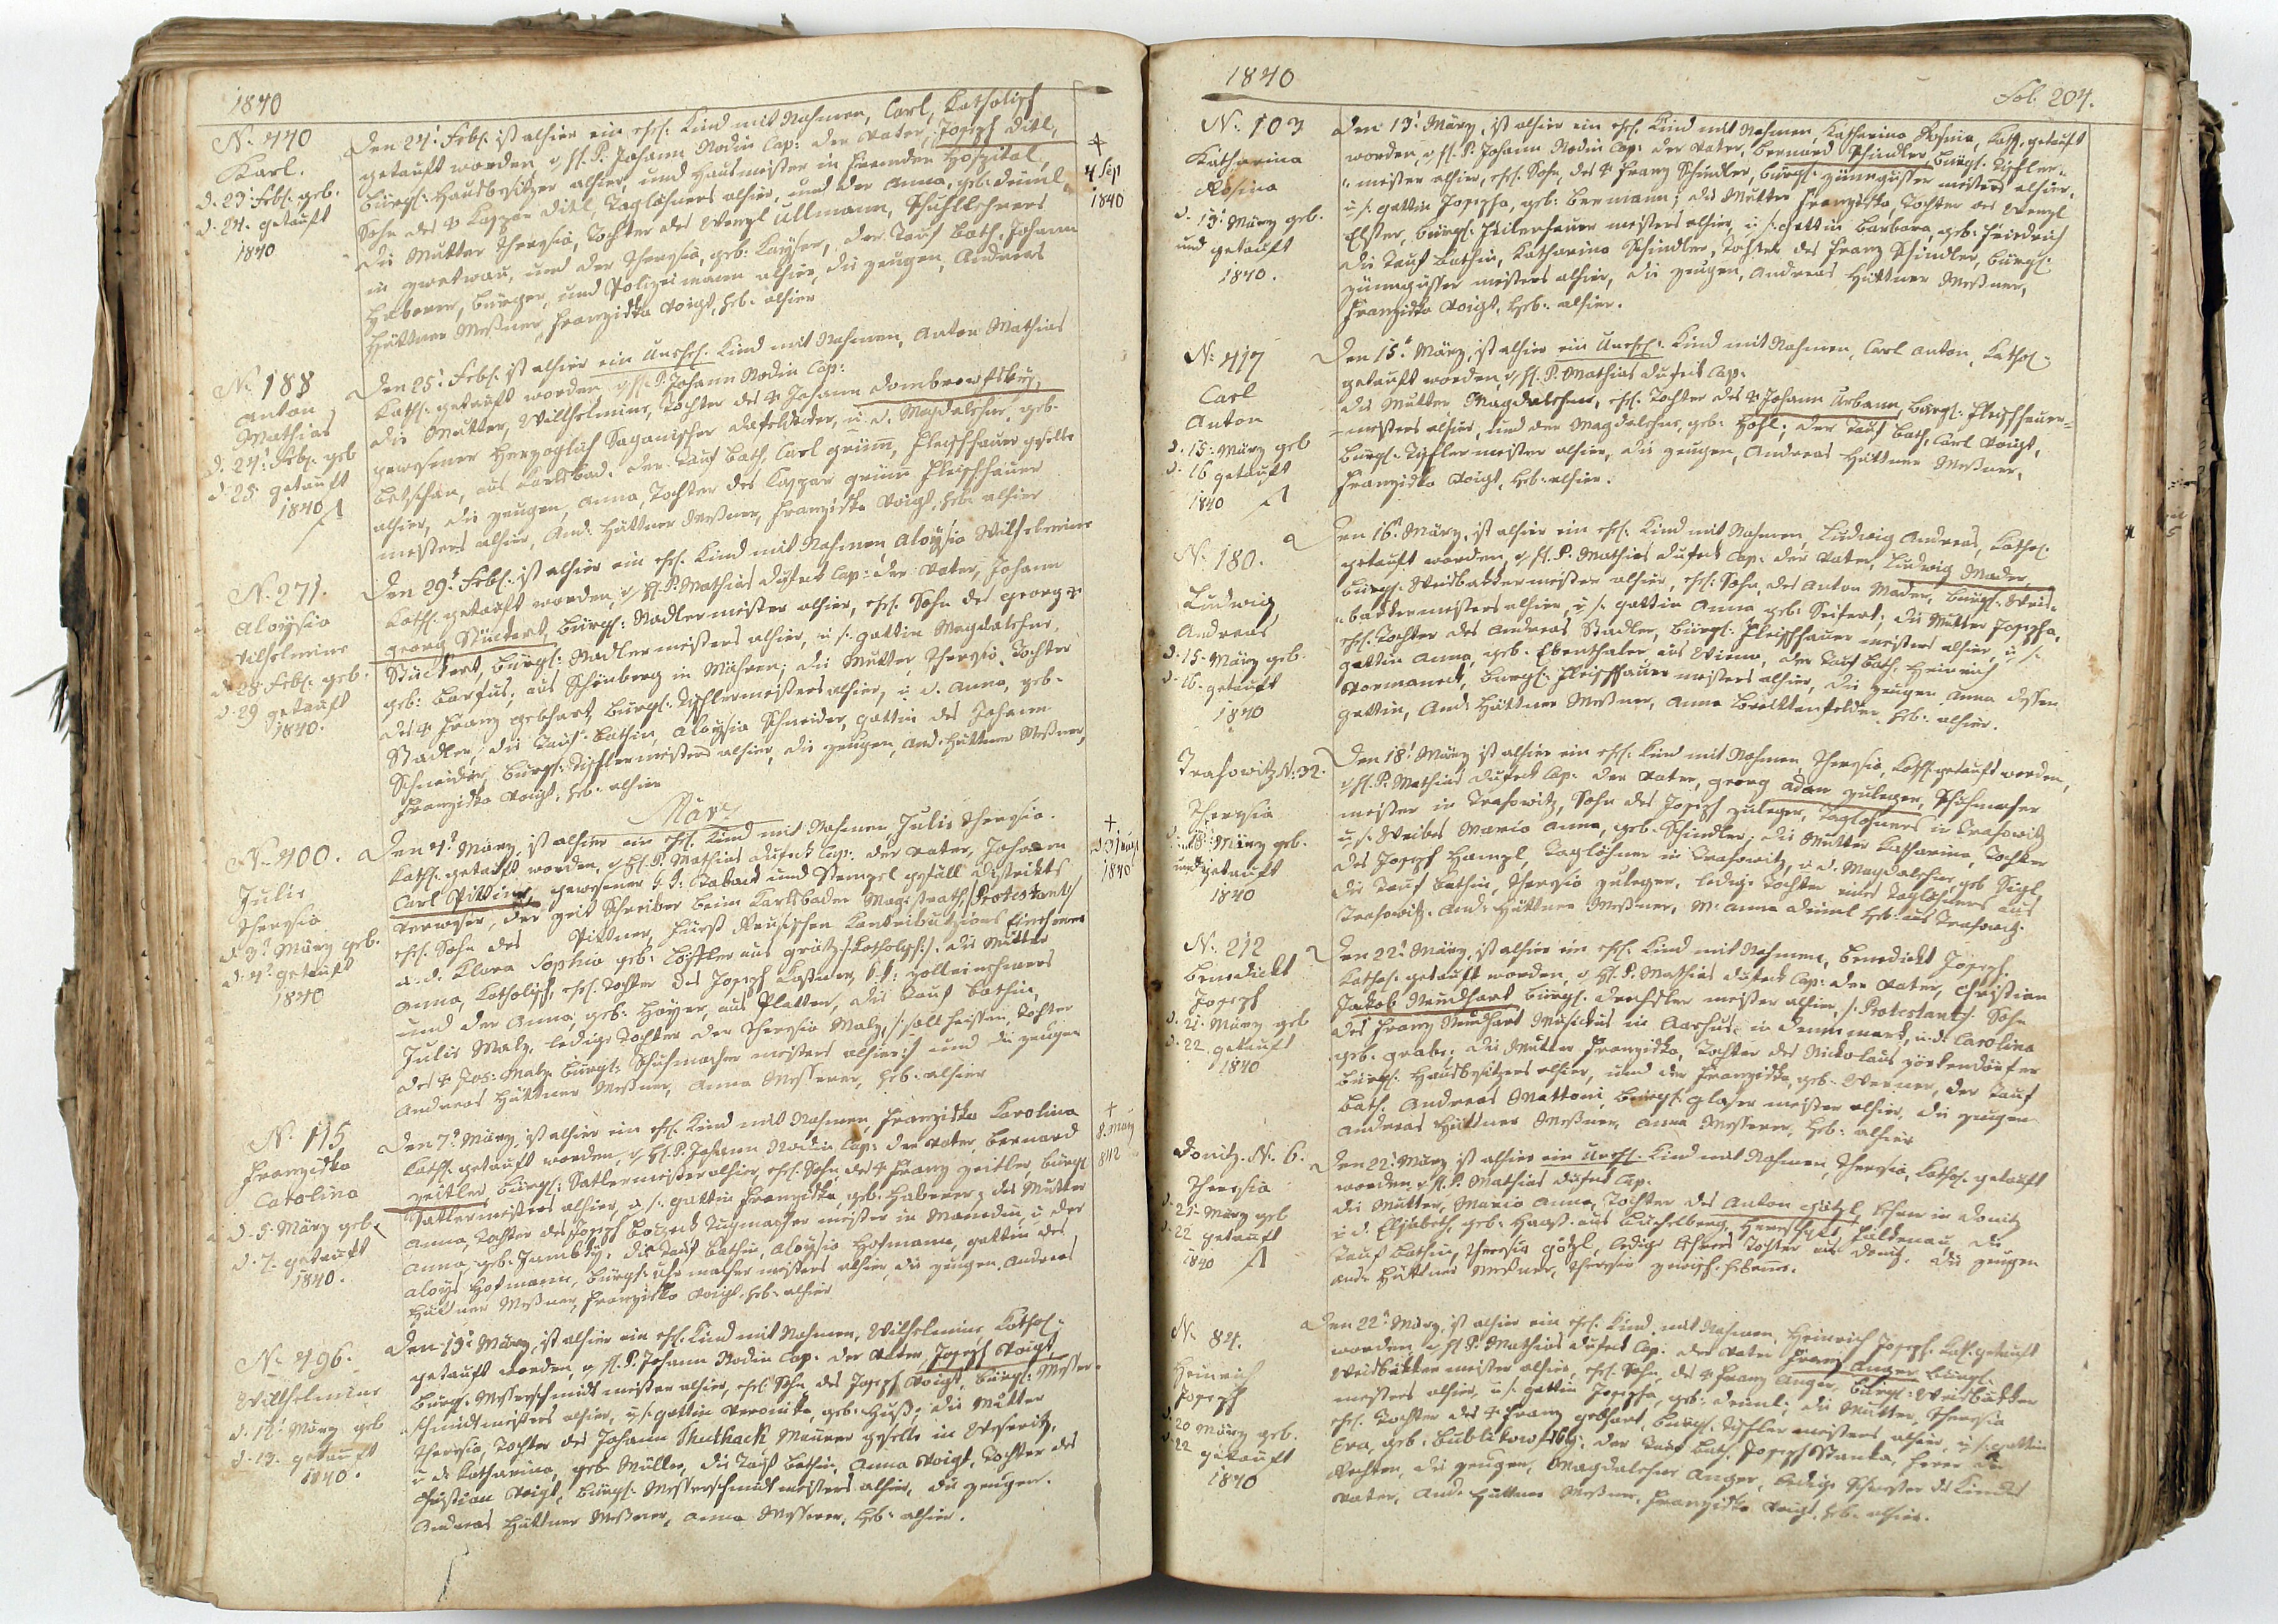 1840
N. 440
Karl.
d. 23t Feb. geb.
d. 24. getauft
1840
Den 24t Feb. ist alhier ein ehl. Kind mit Nahmen, Carl, Katholisch
getauft worden, v H. P. Johann Nodin Cap: der Vater, Joseph Ditl,
bürgl: Hausbesitzer alhier, und Hausmeister im fremden Hospital,
Sohn des † Kaspar Ditl, Taglöhners alhier, und der Anna, geb: Deiml
die Mutter Theresia, Tochter des Wenzl Ullmann, Schullehrers
in und der Theresia, geb: Kayser, der Tauf Path, Johann
Haberer, bürger, und Polizeimann alhier, die Zeugen, Andreas
Hüttner Meßner, Franziska Voigt, Heb: alhier
†
4 Sep
1840
N. 188
Anton
Mathias
d. 24t Feb. geb
d. 25 getauft
1840
Den 25t Feb. ist alhier ein Unehl. Kind mit Nahmen, Anton Mathias
Kath. getauft worden, v H. P. Johann Nodin Cap:
die Mutter, Wilhelmine, Tochter des † Johann Dombrowskÿ,
gewesener Herzoglich Saganischer Tafeldecker, u. d. Magdalena, geb.
Betschan, aus Karlsbad. der Tauf Path, Carl Grimm, Fleischhauer geselle
alhier, die Zeugen, Anna, Tochter des Kaspar Grimm Fleischhauer
meisters alhier, And: Hüttner Meßner, Franziska Voigt, Heb: alhier
N. 271.
Aloÿsia
Wilhelmine
d. 28 Feb. geb.
d. 29 getauft
1840.
Den 29t Feb. ist alhier ein ehl. Kind mit Nahmen Aloÿsia Wilhelmine
Kath. getauft worden, v H. P. Mathias Dusek Cap: der Vater, Johann
Georg Stückert, bürgl: Nadlermeister alhier, ehl. Sohn des Georg
Stückert, bürgl: Nadlermeisters alhier, u. s. Gattin Magdalena,
geb: Barfus, aus Schönberg in Mähren; die Mutter, Theresia Tochter
des † Franz Gebhart, bürgl: Tischlermeisters alhier, u. d. Anna, geb.
Stadler, die Tauf Pathin, Aloÿsia Schneider, Gattin des Johann
Schneider bürgl: Tischlermeisters alhier, die Zeugen, And. Hüttner Meßner,
Franziska Voigt, Heb: alhier
März
N. 400.
Julie
Theresia
d. 3t März geb.
d. 4t getauft
1840
Den 4t März, ist alhier ein ehl. Kind mit Nahmen Julie Theresia.
Kath. getauft worden, v H. P. Mathias Dusek Cap: der Vater, Johann
Carl Pittner, gewesener k.k. Taback und Stempel gefäll Distrikts
Verweser, der Zeit Schreiber beim Karlsbader Magistrath, /:Protestant:/
ehl. Sohn des Pittner, Fürst Reusischen Kontributzions Einnehmer
u. d. Klara Sophia geb: Löffler aus Gratz /:Katholisch:/. die Mutter
Anna, Katholisch, ehl. Tochter des Joseph Kaßner, k.k. Zolleinnehmers
und der Anna, geb: Hoÿer, aus Platten, die Tauf Pathin,
Julie Malz, ledige Tochter der Theresia Malz, /: soll heissen, Tochter
des † Jos: Malz bürgl: Schuhmacher meisters alhier:/ und die Zeugen
Andreas Hüttner Meßner, Anna Messerer, Heb: alhier
†
1840
N. 115
Franziska
Carolina
d. 5. März geb.
d. 7. getauft
1840.
Den 7t März, ist alhier ein ehl. Kind mit Nahmen, Franziska Karolina
Kath. getauft worden, v H. P. Johann Nodin Cap: der Vater, Bernard
Zeitler, bürgl: Sattlermeister alhier, ehl. Sohn des † Franz Zeitler, bürgl
Sattlermeisters alhier, u. s. Gattin Franziska, geb. Haberer; die Mutter
Anna, Tochter des Joseph Tuchmacher meister in u. der
Anna, geb: die Tauf Pathin, Aloÿsia Hofmann, Gattin des
Aloÿs Hofmann, bürgl: Uhrmacher meisters alhier, die Zeugen, Andreas
Hüttner Meßner, Franziska Voigt, Heb: alhier
†
8. März
842
N. 496.
Wilhelmine
d. 12t März geb
d. 13. getauft
1840.
Den 13t März, ist alhier ein ehl. Kind mit Nahmen, Wilhelmine Kathol:
getauft worden, v H. P. Johann Nodin Cap: der Vater, Joseph Voigt,
bürgl: Messerschmidt meister alhier, ehl. Sohn des Joseph Voigt, bürgl: Messer
schmidt meisters alhier, u. s. Gattin Veronika, geb: Huß; die Mutter
Theresia, Tochter des Johann Maurer geselle in
u. d. Katharina, geb. Müller, die Tauf Pathin, Anna Voigt, Tochter des
Christian Voigt, bürgl. Messerschmidt meisters alhier, die Zeugen.
Andreas Hüttner Meßner, Anna Messerer, Heb: alhier.
1840
Fol. 204.
N. 103
Katharina
Rosina
d. 13t März geb.
und getauft
1840.
Den 13t März, ist alhier ein ehl. Kind mit Nahmen, Katharina Rosina, Kath. getauft
worden, v H. P. Johann Nodin Cap: der Vater, Bernard Schindler, bürgl. Tischler-
meister alhier, ehl. Sohn, des † Franz Schindler, bürgl: Zinngüsser meisters alhier,
u. s. Gattin Josepha, geb: Beermann; die Mutter Franziska Tochter des Wenzl
Elster, bürgl: Feilenhauer meisters alhier, u. s. Gattin Barbara, geb: Friedrich
die Tauf Pathin, Katharina Schindler, Tochter des Franz Schindler, bürgl.
Zinngüsser meisters alhier, die Zeugen, Andreas Hüttner Meßner,
Franziska Voigt, Heb: alhier.
N. 417
Carl
Anton
d. 15. März geb
d. 16 getauft
1840
Den 15t März, ist alhier ein Unehl: Kind mit Nahmen, Carl Anton, Kathol:
getauft worden, v H. P. Mathias Dusek Cap:
die Mutter Magdalena, ehl. Tochter des † Johann Urbann, bürgl: Fleischhauer-
meisters alhier, und der Magdalena, geb: Höhl; der Tauf Path, Carl Voigt,
bürgl. Tischler meister alhier, die Zeugen, Andreas Hüttner Meßner,
Franziska Voigt, Heb: alhier.
N. 180.
Ludwig
Andreas
d. 15. März geb.
d. 16. getauft
1840
Den 16t März, ist alhier ein ehl. Kind mit Nahmen, Ludwig Andreas, Kathol.
getauft worden, v H. P. Mathias Dusek Cap: der Vater, Ludwig Mader,
bürgl. Weisbäckermeister alhier, ehl. Sohn, des Anton Mader, bürgl: Weis-
bäckermeisters alhier, u. s. Gattin Anna geb: Seifert; die Mutter Josepha,
ehl. Tochter des Andreas Stadler, bürgl: Fleischhauer meisters alhier, u. s.
Gattin Anna, geb. Ebenthaler aus Wienn, der Tauf Path. Heinrich
Wormaneck, bürgl: Fleischhauer meisters alhier, die Zeugen Anna dessen
Gattin, And: Hüttner Meßner, Anna Breittenfelder, Heb: alhier.
Trahowitz N. 32.
Theresia
d. 18t März geb.
und getauft
1840
Den 18t März ist alhier ein ehl. Kind mit Nahmen, Theresia, Kath. getauft worden,
v H. P. Mathias Dusek Cap: der Vater, Georg Adam Zuleger, Schuhmacher
meister in Trahowitz, Sohn des Joseph Zuleger, Taglöhners in Trahowitz
u. s. Weibes Maria Anna, geb. Schindler; die Mutter Katharina, Tochter
des Joseph Hampl, Taglöhner in Trahowitz, u. d. Magdalena, geb Sigl
die Tauf Pathin, Theresia Zuleger, ledige Tochter eines Taglöhners aus
Trahowitz. And. Hüttner Meßner, M: Anna Deiml Heb: aus Trahowitz.
N. 212
Benedickt
Joseph
d. 21. März geb
d. 22. getauft
1840
Den 22t März, ist alhier ein ehl. Kind mit Nahmen, Benedickt Joseph,
Kathol. getauft worden, v H. P. Mathias Dusek Cap: der Vater, Christian
Jakob Neudhart bürgl. Drechsler meister alhier, /:Protestant:/ Sohn
des Franz Neudhart Musickus in Aarhus in Dennmark, u. d. Carolina
geb. Grabe: die Mutter Franziska, Tochter des Nickolaus Görkendörfer
bürgl. Hausbesitzers alhier, und der Franziska, geb. Werner, der Tauf
Path. Andreas Mattoni, bürgl: Glaser meister alhier, die Zeugen
Andreas Hüttner Meßner, Anna Messerer, Heb: alhier
Donitz. N. 6.
Theresia
d. 21. März geb
d. 22 getauft
1840
Den 22t März, ist alhier ein Unehl. Kind mit Nahmen, Theresia, Kathol. getauft
worden, v H. P. Mathias Dusek Cap:
die Mutter, Maria Anna, Tochter des Anton Götzl, in Donitz
u. d. Elisabeth, geb: aus Herrschaft Falkenau die
Tauf Pathin, Theresia Götzl, ledige Tochter aus Donitz. die Zeugen
And. Hüttner Meßner, Theresia Hebame.
N. 84.
Heinrich
Joseph
d. 20 März geb.
d. 22 getauft
1840
Den 22t März, ist alhier ein ehl. Kind, mit Nahmen, Heinrich Joseph. Kath. getauft
worden, v H. P. Mathias Dusek Cap: der Vater Franz Anger, bürgl:
Weisbäcker meister alhier, ehl. Sohn, des † Franz Anger, bürgl: Weisbäcker
meisters alhier, u. s. Gattin Josepha, geb: Deiml; die Mutter, Theresia
ehl. Tochter des † Franz Gebhart, bürgl. Tischler meisters alhier, u. s. Gattin
Eva, geb: der Tauf Path. Joseph Stanka,
die Zeugen, Magdalena Anger, ledige Schwester des Kindes
Vater, And. Hüttner Meßner, Franziska Voigt, Heb. alhier.